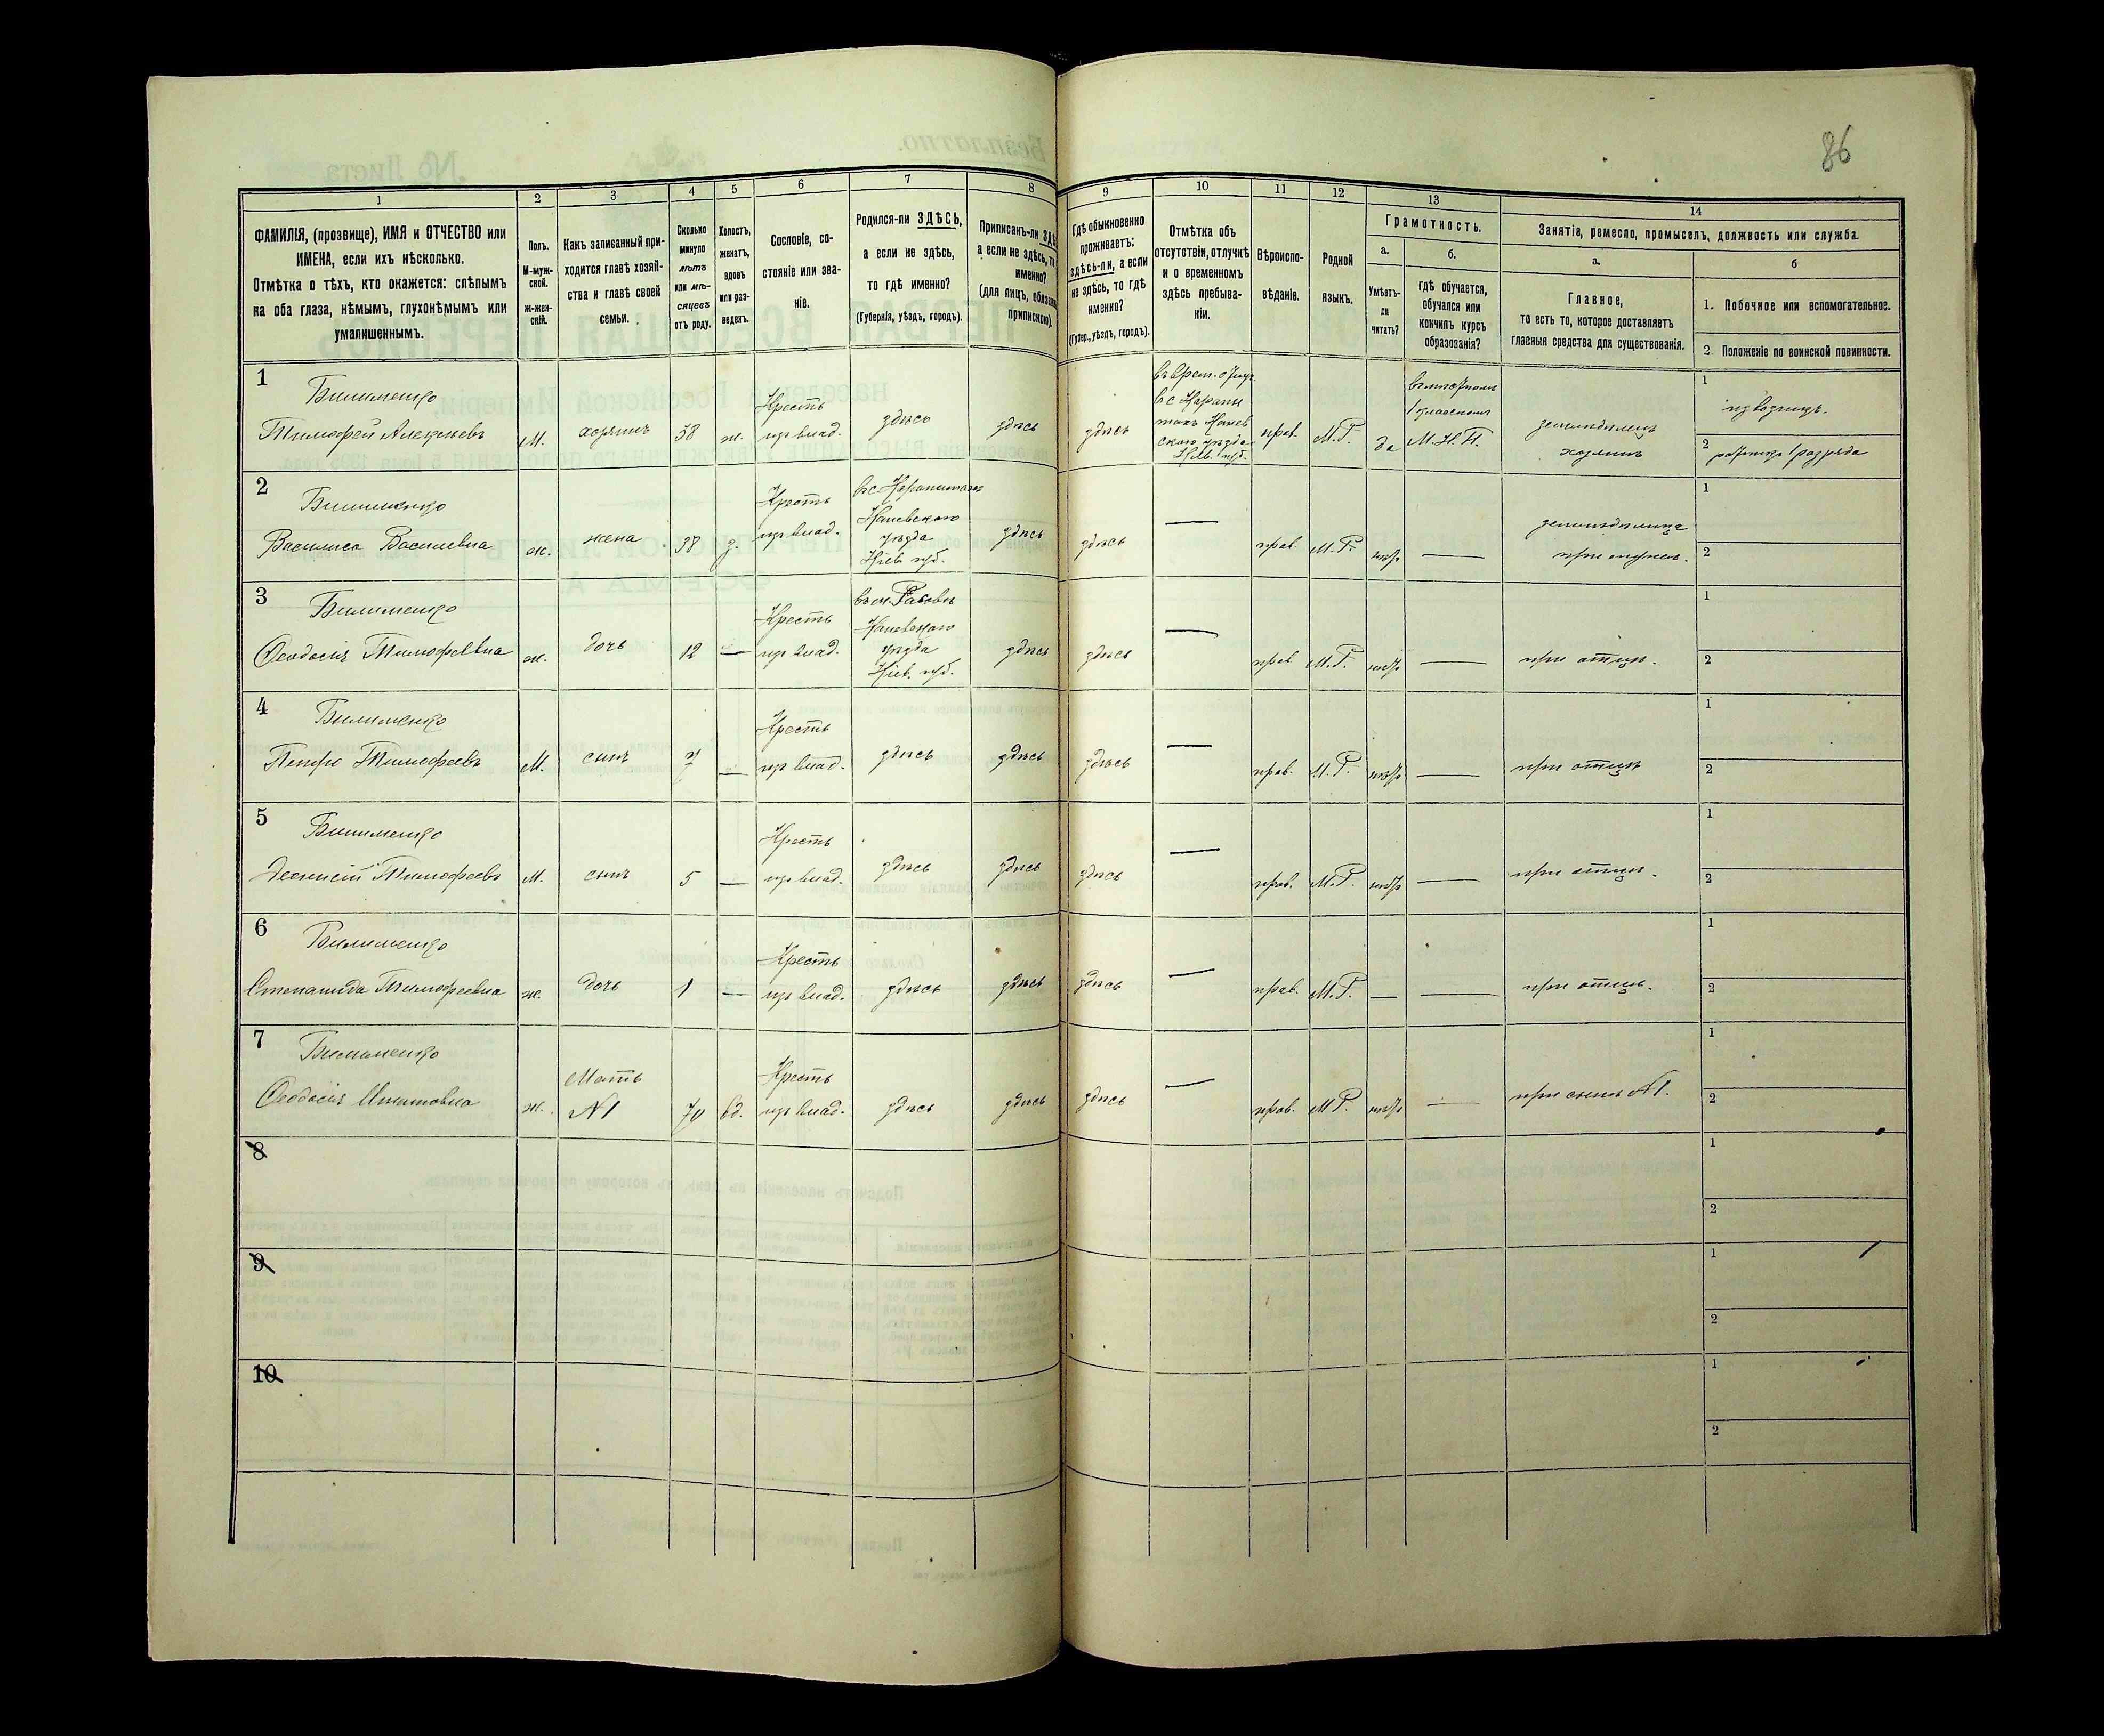 86
1 2 3 4 5 6 7 8 9 10 11 12 13 14
ФАМИЛІЯ, (прозвище), ИМЯ и ОТЧЕСТВО или
ИМЕНА, если ихъ нѣсколько.
Отмѣтка о тѣхъ, кто окажется: слѣпымъ
на оба глаза, нѣмымъ, глухонѣмымъ или
умалишеннымъ.
Полъ.
М-муж-
ской.
ж-жен-
скій.
Какъ записанный при-
ходится главѣ хозяй-
ства и главѣ своей
семьи.
Сколько
минуло
лѣтъ
или мѣ-
сяцевъ
отъ роду.
Холостъ,
женатъ,
вдовъ
или раз-
веденъ.
Сословіе, со-
стояніе или зва-
ніе.
Родился-ли ЗДѢСЬ,
а если не здѣсь,
то гдѣ именно?
(Губернія, уѣздъ, городъ).
Приписанъ-ли
а если не здѣсь,
именно?
(для лицъ,
припискою).
Гдѣ обыкновенно
проживаетъ:
здѣсь-ли, а если
не здѣсь, то гдѣ
именно?
(Губер., уѣздъ, городъ).
Отмѣтка объ
отсутствіи, отлучкѣ
и о временномъ
здѣсь пребыва-
ніи.
Вѣроиспо-
вѣданіе.
Родной
языкъ.
Грамотность.
а.
Умѣетъ-
ли
читать?
б.
гдѣ обучается,
обучался или
кончилъ курсъ
образованія?
Занятіе, ремесло, промыселъ, должность или служба.
а.
Главное,
то есть то, которое доставляетъ
главныя средства для существованія.
б
1. Побочное или вспомогательное.
2 Положеніе по воинской повинности.
1
Тимофей Алексѣевъ
М. хозяинъ 38 ж.
Крестъ
изъ влад.
здѣсь здѣсь здѣсь
прав. М.Р. да
М.Н.П.
земледѣлецъ
хозяинъ
1
извозчикъ.
2 ратникъ 1 разряда
2
Василиса Василевна
ж. жена 38 з.
Крестъ
изъ влад.
Каневскаго
уѣзда
Кіев. губ.
здѣсь здѣсь —
прав. М.Р. нѣтъ —
земледѣлица
при мужѣ.
1
2
3
Феодосія Тимофеевна
ж. дочь 12 —
Крестъ
изъ влад.
Каневскаго
уѣзда
Кіев. губ.
здѣсь здѣсь —
прав М.Р. нѣтъ — при отцѣ.
1
2
4
Петро Тимофеевъ
М. сынъ 7 —
Крестъ
изъ влад.
здѣсь здѣсь здѣсь —
прав. М.Р. нѣтъ — при отцѣ
1
2
5
Деонисій Тимофеевъ
М. сынъ 5 —
Крестъ
изъ влад
здѣсь здѣсь здѣсь —
прав. М.Р. нѣтъ — при отцѣ.
1
2
6
Степанида Тимофеевна
ж. дочь 1 —
Крестъ
изъ влад.
здѣсь здѣсь здѣсь —
прав. М.Р. — — при отцѣ.
1
2
7
Феодосія
ж. Мать
№1 70 вд.
Крестъ
изъ влад.
здѣсь здѣсь здѣсь —
прав. М.Р. нѣтъ — при сынѣ №1.
1
2
8
1
2
9
1
2
10
1
2